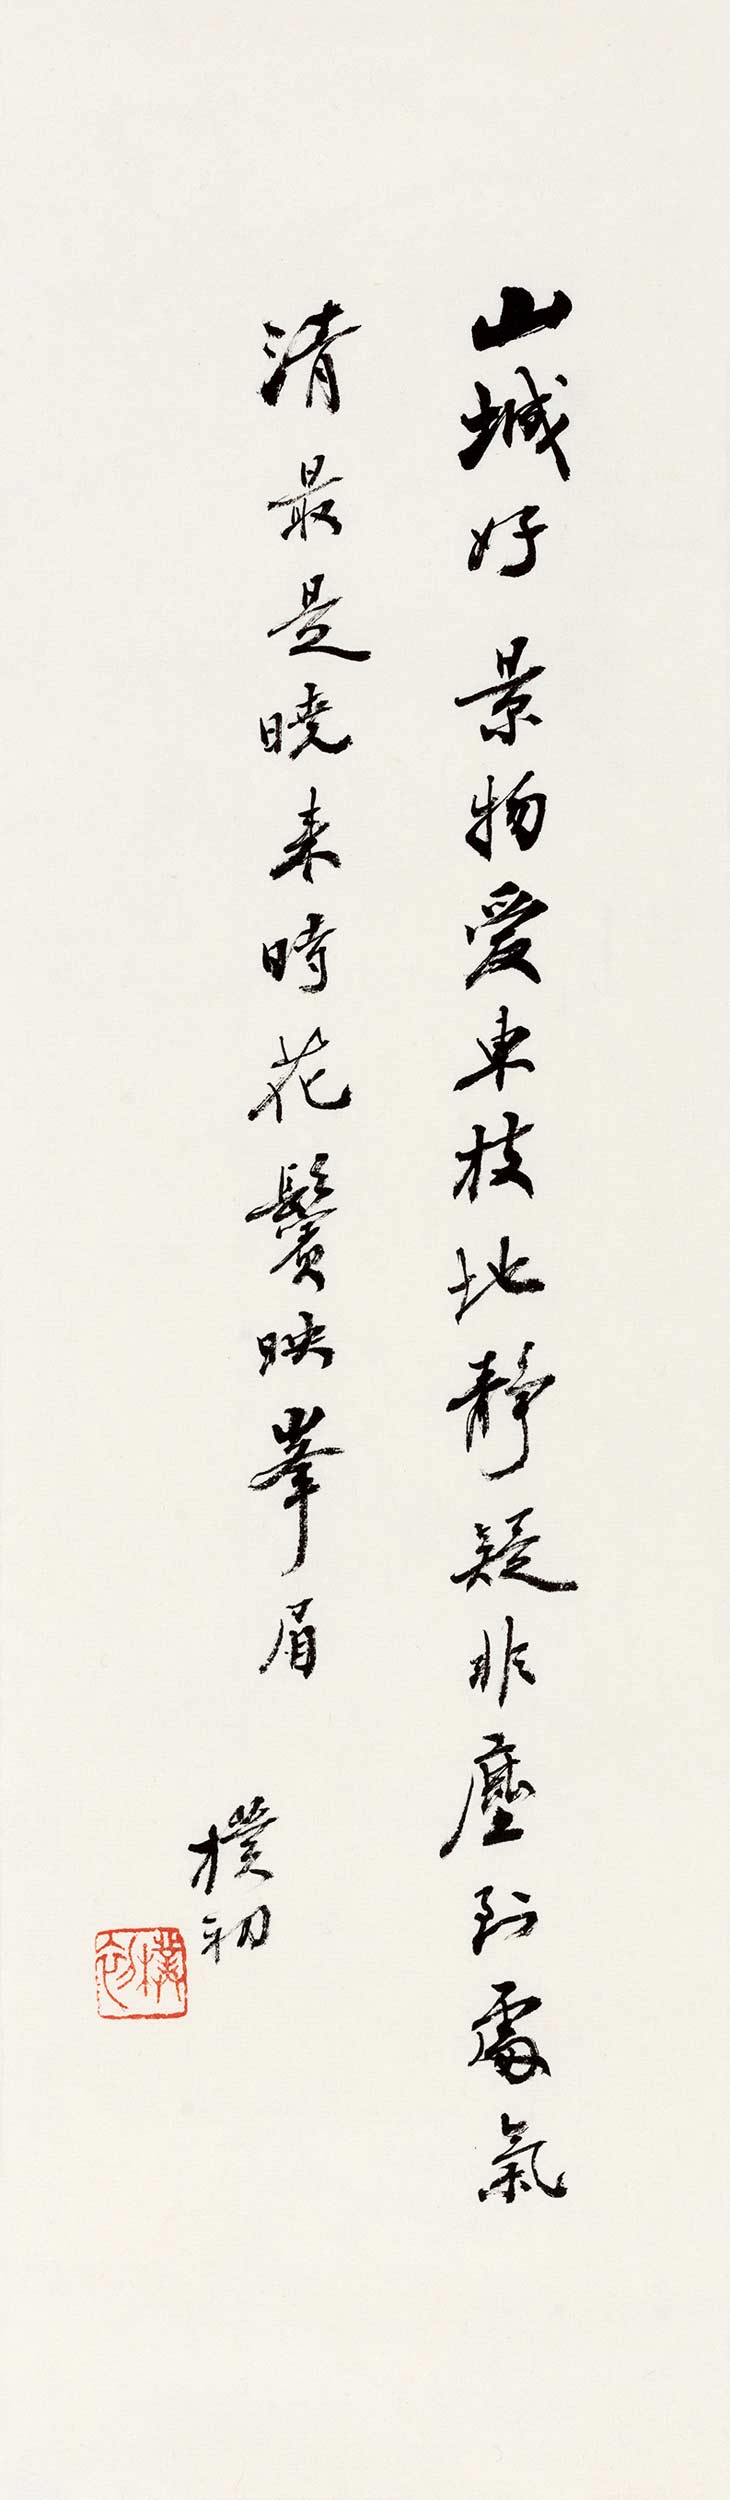 山城好景物愛東枝地靜疑非塵到處氣
清最是曉來時花鬢映峯眉
樸初
樸初